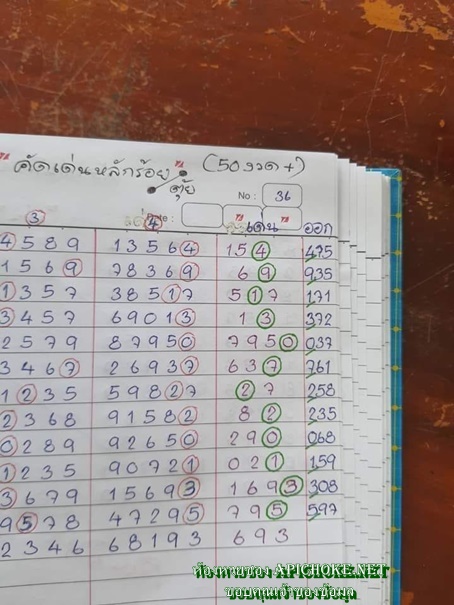 คัดเด่นหลักร้อย (50งวด+)
ตุ้ย
No: 36
Date:
3 4 เด่น ออก
4589 13564 154 475
1569 78369 69 935
1357 38517 517 171
3457 69013 13 372
2579 87950 7950 037
3467 26937 637 761
1235 59827 27 258
2368 91582 82 235
0289 92650 290 068
1235 90721 021 159
3679 15693 1693 308
9578 47295 795 597
2346 68193 693
ห้องหวยซอง APICHOKE.NET
ขอบคุณเจ้าของข้อมูล